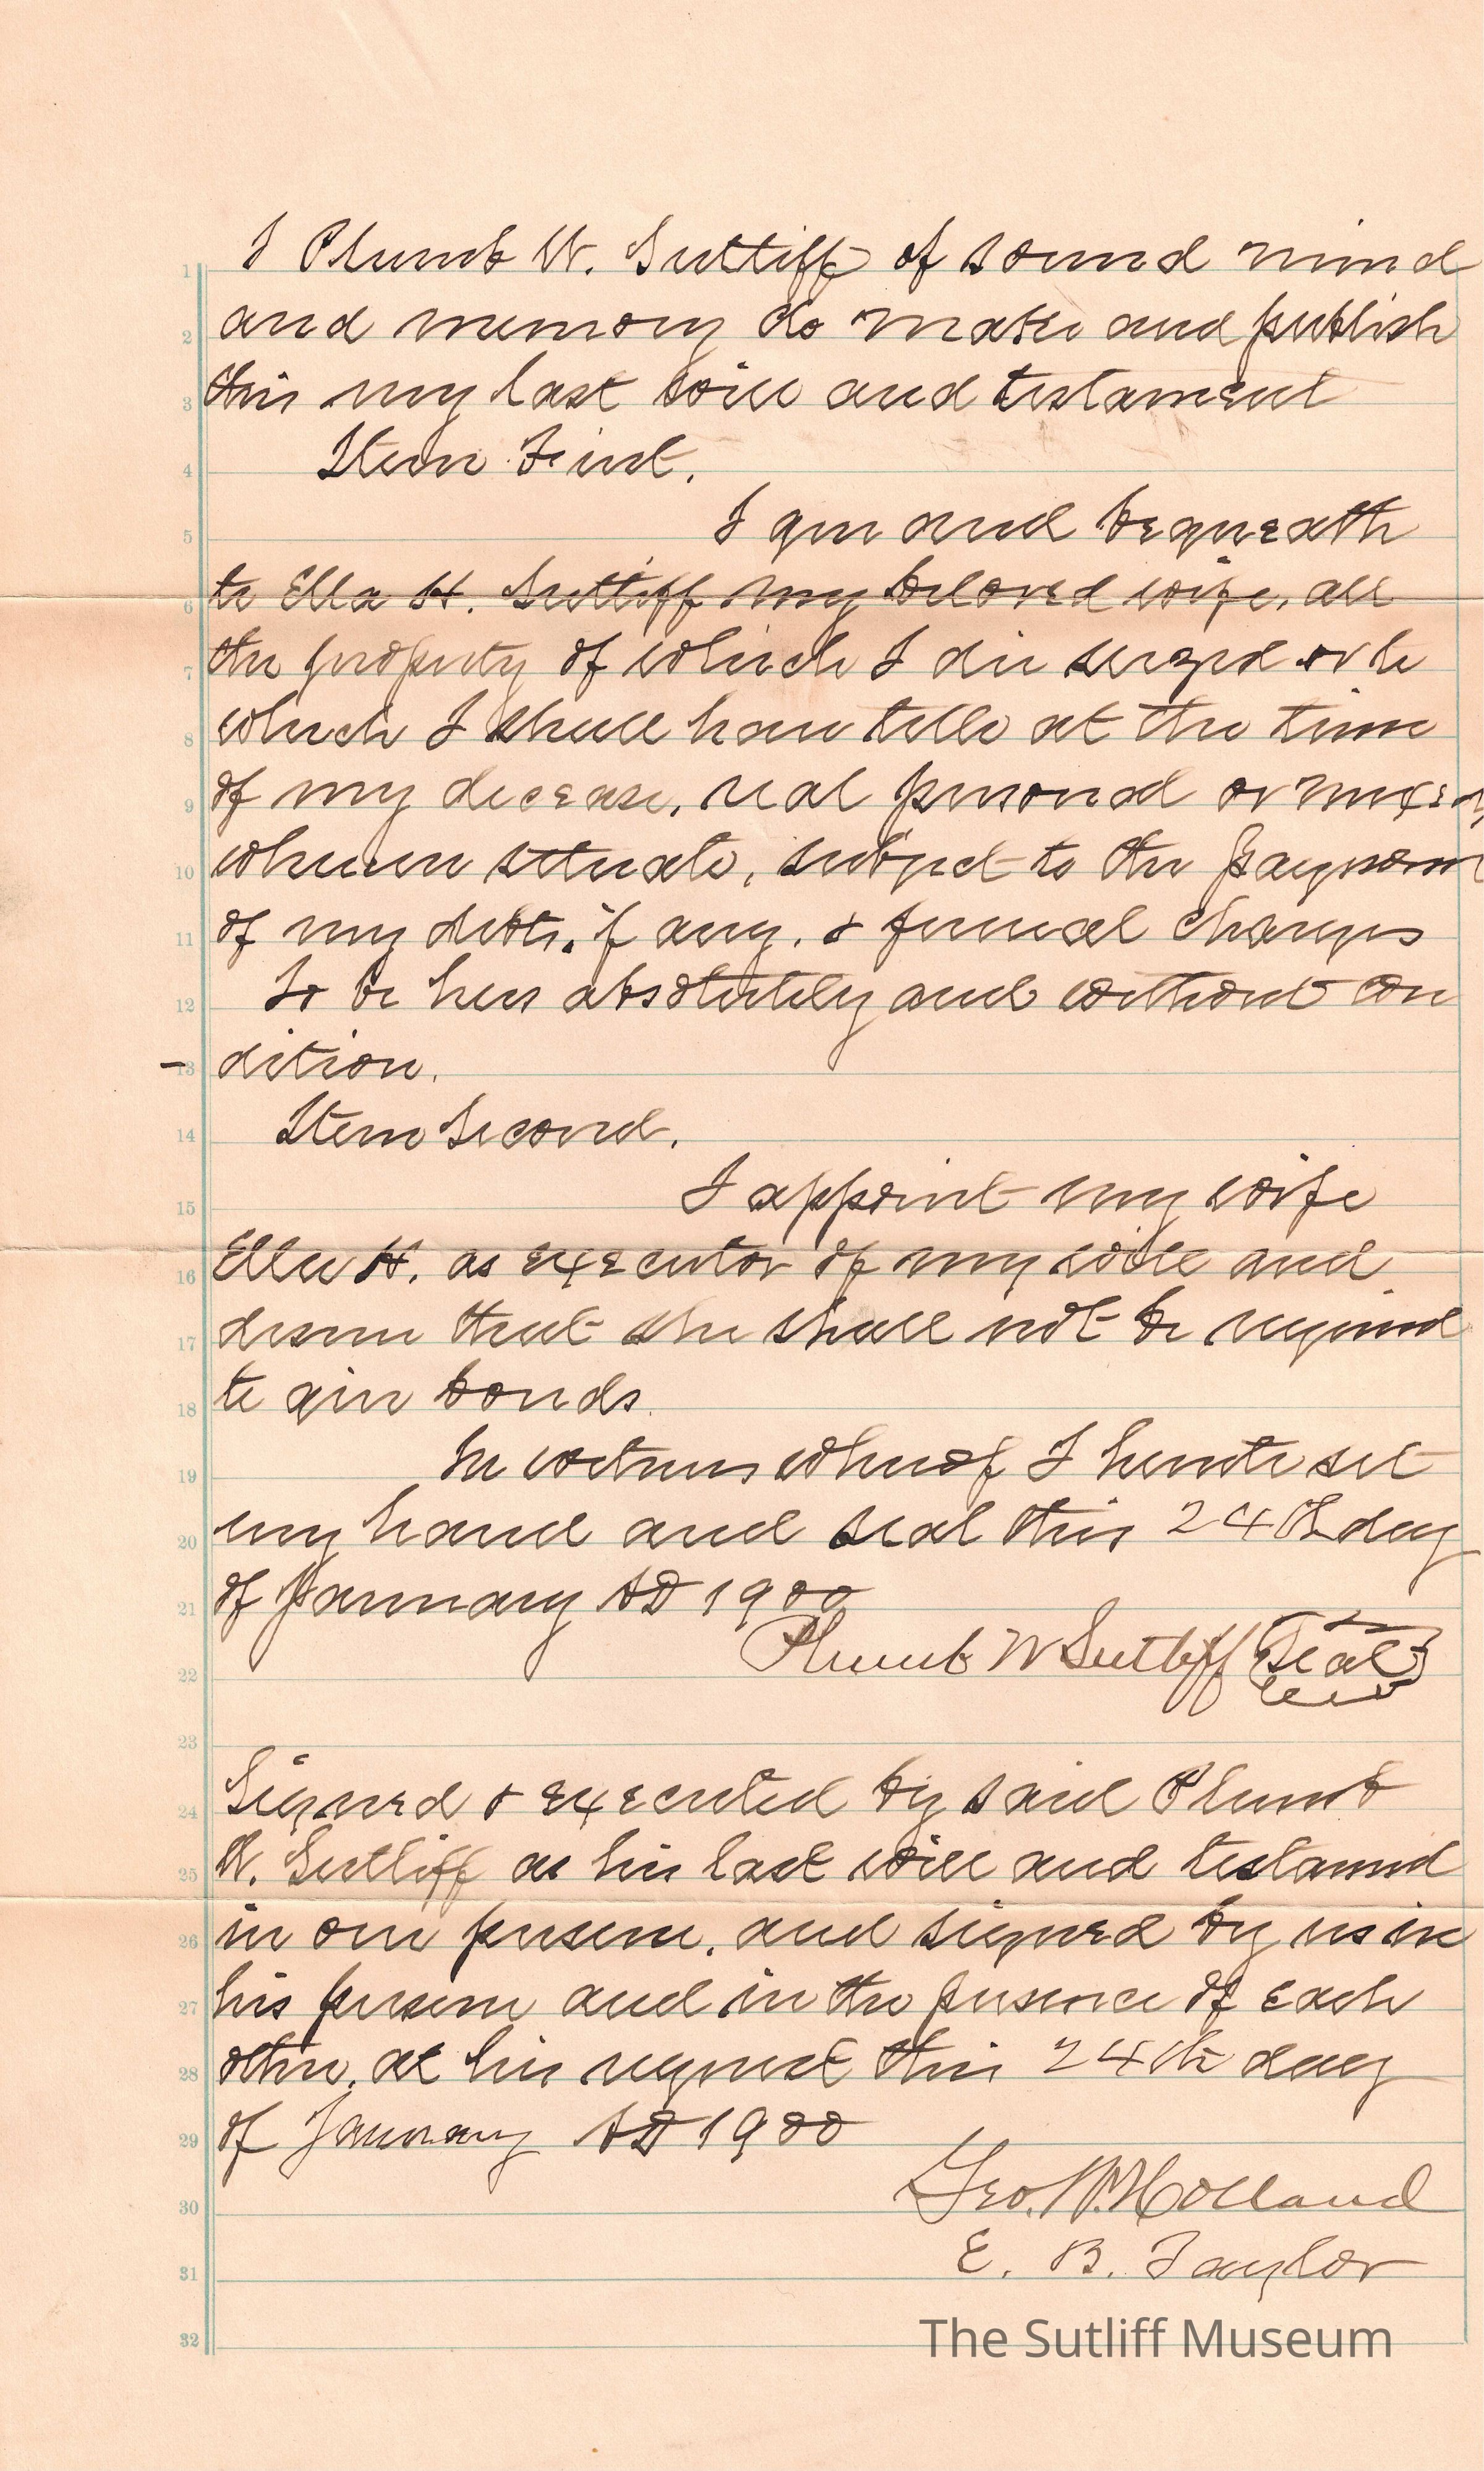 1 I Plumb W. Sutliff of sound mind
2 and memory do make and publish
3 this my last will and testament
4 Item First.
5 I give and bequeath
6 to Ella H. Sutliff my beloved wife, all
7 the property of which I die seized or to
8 which I shall have title at the time
9 of my decease, real personal or mixed
10 wherever situate, subject to the payment
11 of my debts, if any, & funeral charges
12 To be hers absolutely and without con
13 - dition.
14 Item Second.
15 I appoint my wife
16 Ella H. as executor of my will and
17 desire that she shall not be required
18 to give bonds.
19 In witness whereof I hereto set
20 my hand and seal this 24th day
21 of January AD 1900
22 Plumb W Sutliff Seal
23
24 Signed & executed by said Plumb
25 W. Sutliff as his last will and testament
26 in our presence, and signed by us in
27 his presence and in the presence of each
28 other, at his request this 24th day
29 of January AD 1900
30 Geo. W. Holland
31 E. B. Taylor
32
The Sutliff Museum